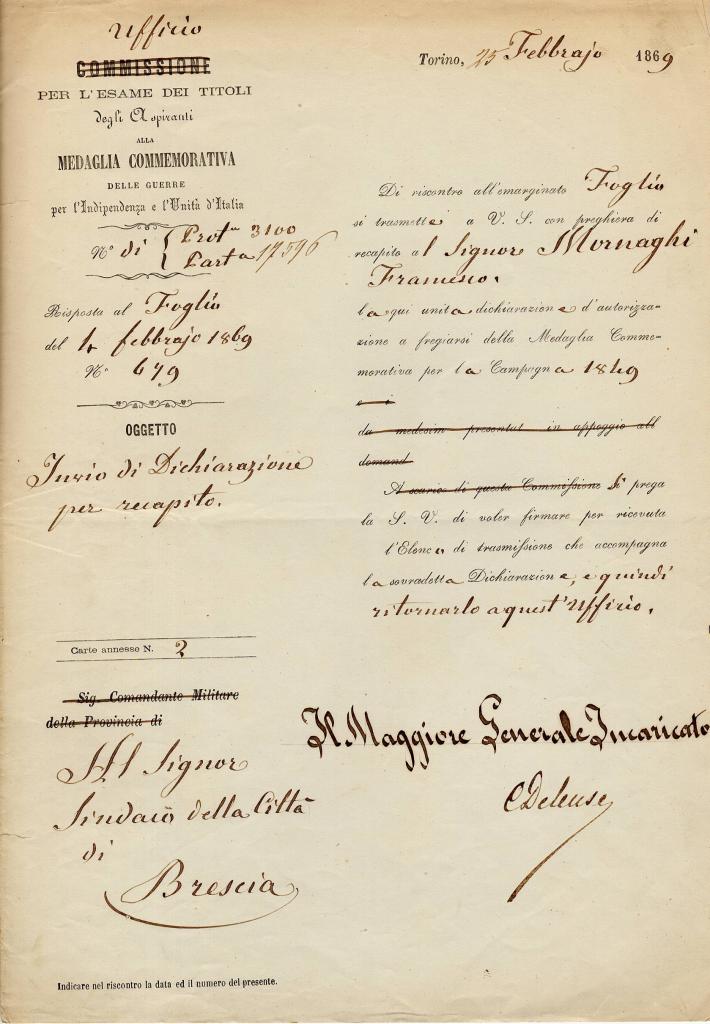 Ufficio
COMMISSIONE
PER L'ESAME DEI TITOLI
degli Aspiranti
ALLA
MEDAGLIA COMMEMORATIVA
DELLE GUERRE
per l'Indipendenza e l'Unità d'Italia
N° di { Prot.lo 3100
Part.a 17596
Risposta al Foglio
del 4 febbrajo 1869
N° 679
OGGETTO
Invio di Dichiarazione
per recapito.
Carte annesse N. 2
Sig. Comandante Militare
della Provincia di
Al Signor
Sindaco della Città
di
Brescia
Indicare nel riscontro la data ed il numero del presente.
Torino, 25 Febbrajo 1869
Di riscontro all'emarginato Foglio
si trasmette a V. S. con preghiera di
recapito al Signor Mornaghi
Francesco.
la qui unita dichiarazione d'autorizza-
zione a fregiarsi della Medaglia Comme-
morativa per la Campagna 1849
e i
da medesim presentat in appoggio all
domand
A scarico di questa Commissione Si prega
la S. V. di voler firmare per ricevuta
l'Elenco di trasmissione che accompagna
la sovradetta Dichiarazione, e quindi
ritornarlo a quest'Ufficio.
Il Maggiore Generale Incaricato